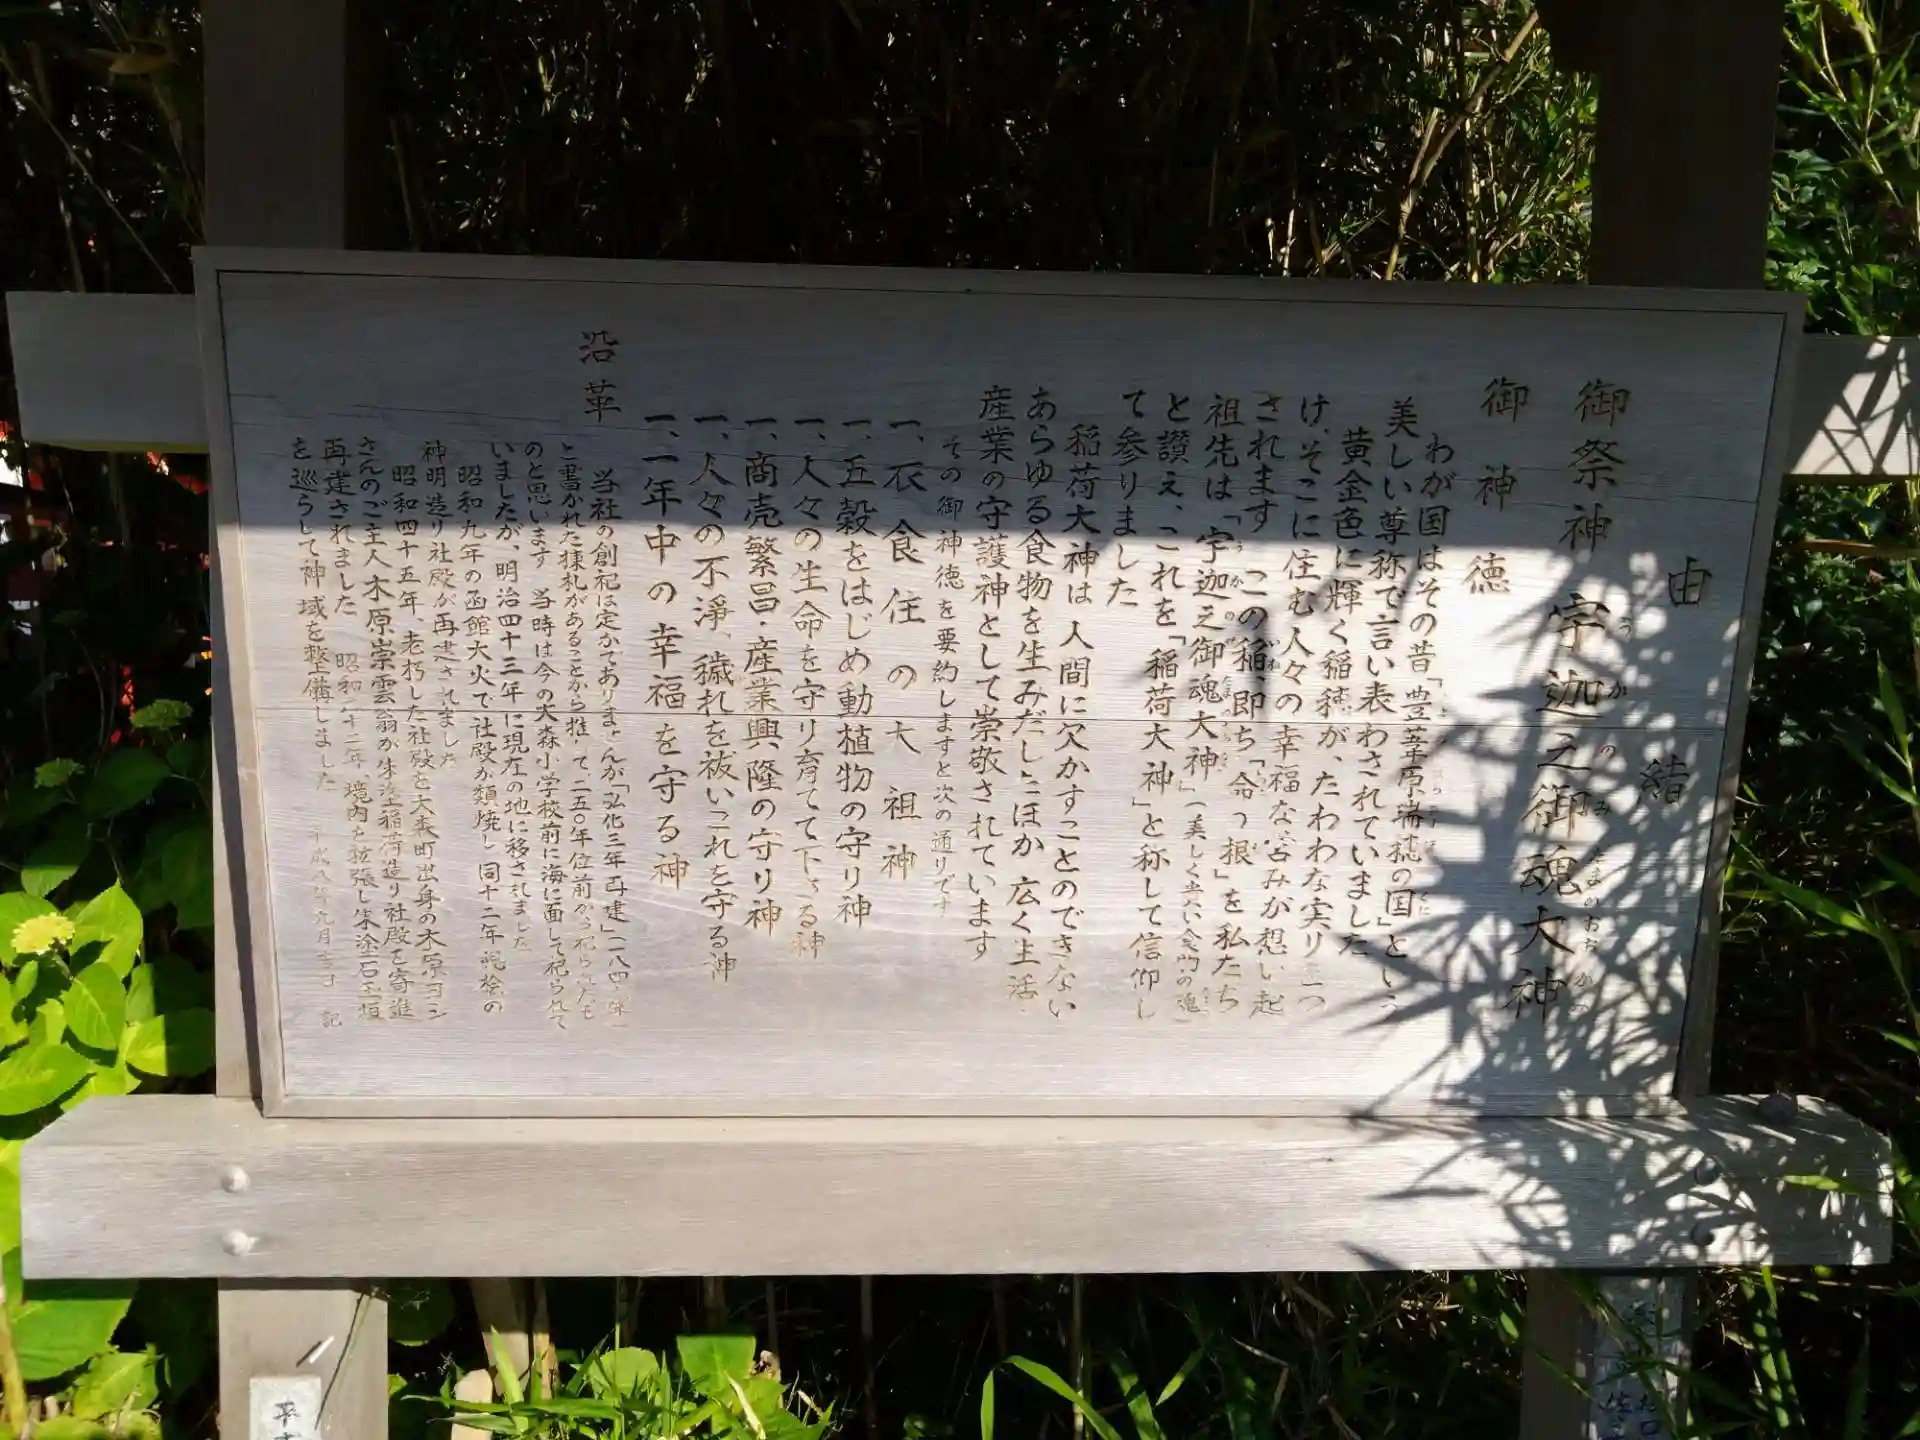 由緒
御祭神 宇迦之御魂大神
御神徳
わが国はその昔「豊葦原瑞穂の国」という
美しい尊称で言い表わされていました
黄金色に輝く稲穂が、たわわな実りをつ
け、そこに住む人々の幸福な営みが想い起
されます この稲、即ち「命の根」を私たち
祖先は「宇迦之御魂大神」(美しく貴い食物の魂)
と讃え、これを「稲荷大神」と称して信仰し
て参りました
稲荷大神は人間に欠かすことのできない
あらゆる食物を生みだしたほか広く生活・
産業の守護神として崇敬されています
その御神徳を要約しますと次の通りです
一、衣食住の大祖神
一、五穀をはじめ動植物の守り神
一、人々の生命を守り育てて下さる神
一、商売繁昌・産業興隆の守り神
一、人々の不浄、穢れを祓いこれを守る神
一、一年中の幸福を守る神
沿革
当社の創祀は定かでありませんが「弘化三年再建」(一八四 年)
と書かれた棟札があることから推して二五〇年位前から祀られたも
のと思います 当時は今の大森小学校前に海に面して祀られて
いましたが、明治四十三年に現在の地に移されました
昭和九年の函館大火で社殿が類焼し同十二年総桧の
神明造り社殿が再建されました
昭和四十五年、老朽した社殿を大森町出身の木原ヨシ
さんのご主人木原崇雲翁が朱塗稲荷造り社殿を寄進
再建されました 昭和 十二年、境内を拡張し朱塗石玉垣
を巡らして神域を整備しました 平成八年九月 記